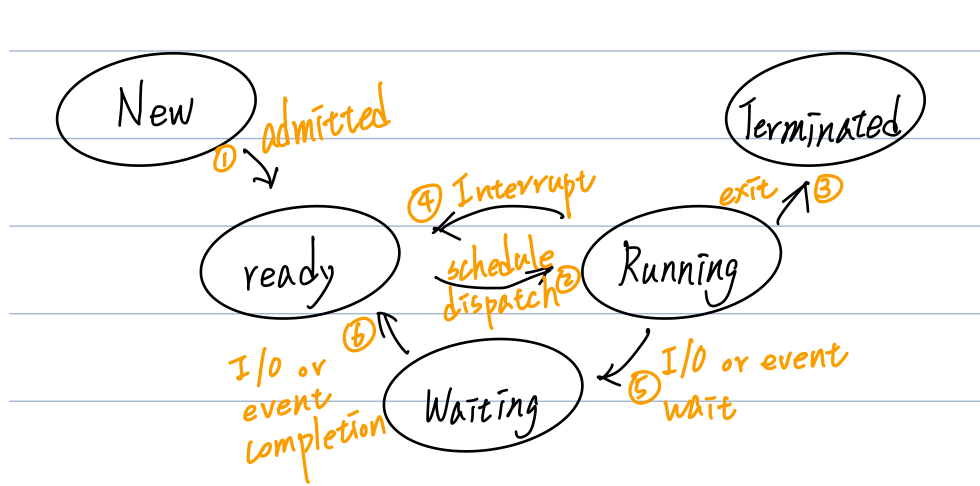 New
Terminated
① admitted
④ Interrupt
exit ③
ready
schedule
dispatch ②
Running
⑥
I/O or
event
completion
Waiting
⑤ I/O or event
wait